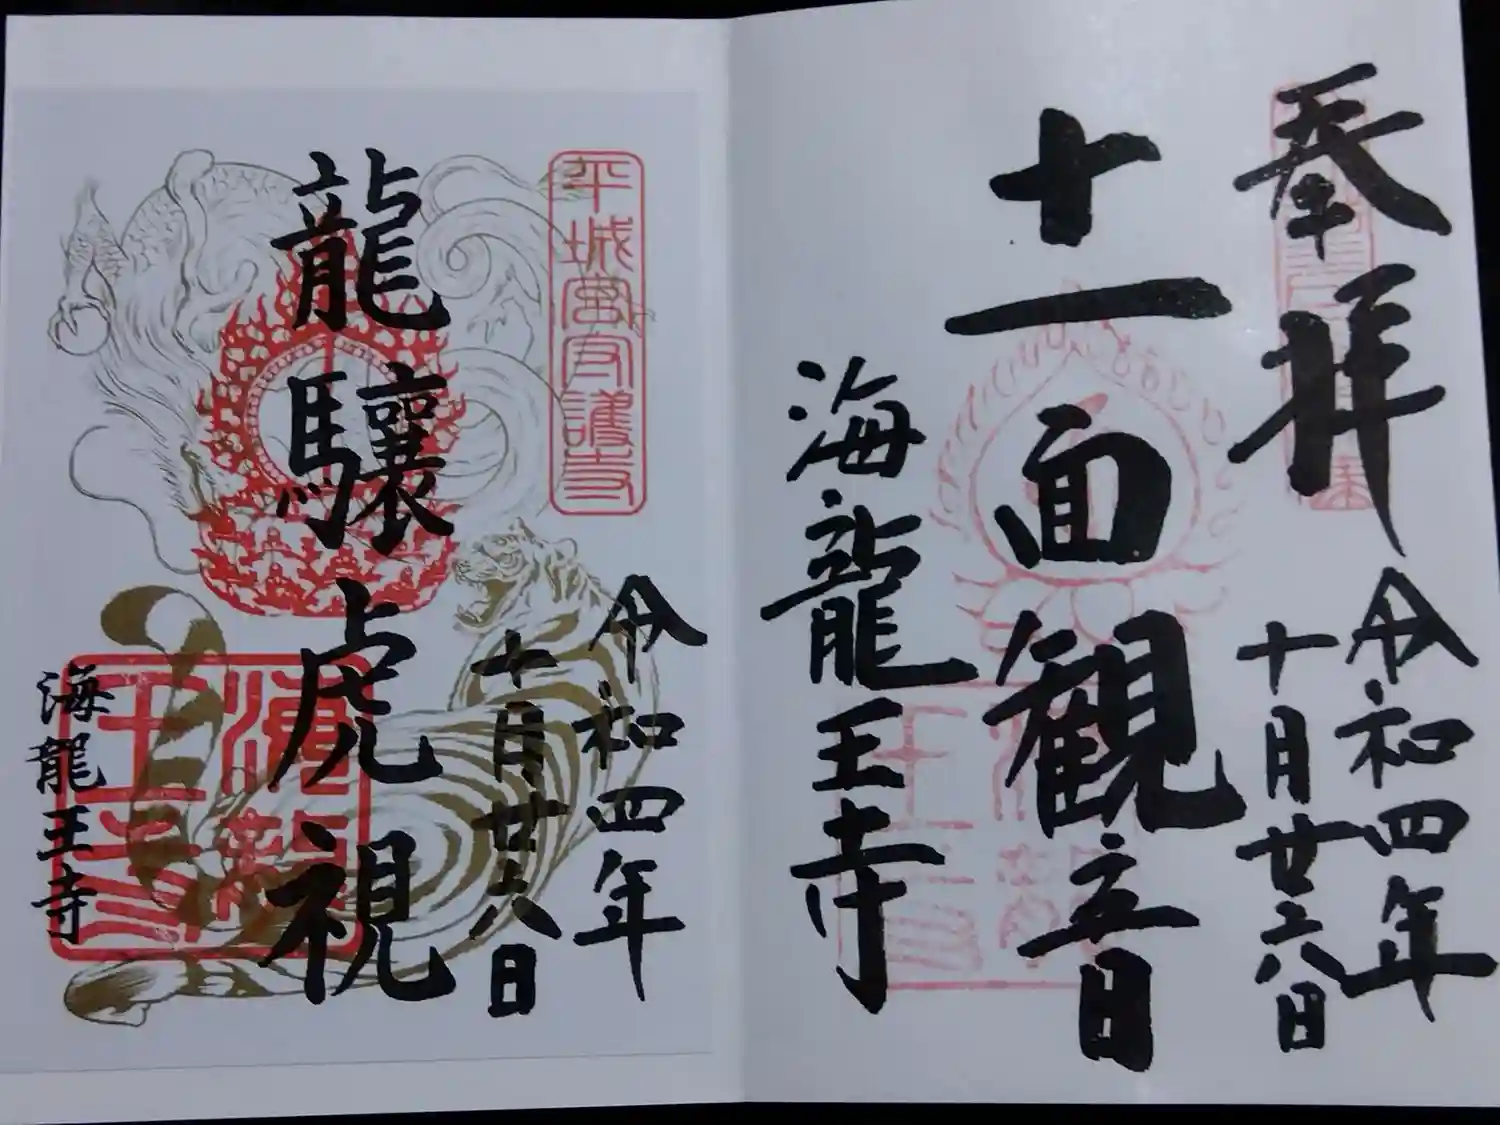 奉拝
令和四年
十月廿六日
十一面観音
海龍王寺
平城宮守護寺
令和四年
十月廿六日
龍驤虎視
海龍王寺
海龍王寺